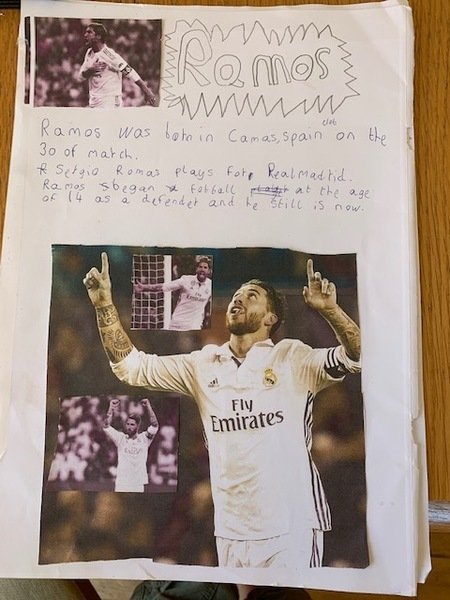 Ramos
Ramos was born in Camas, spain on the
30 of match.
* Sergio Romas plays for Real madrid.
Ramos began fotball at the age
of 14 as a defender and he still is now.
Fly
Emirates
Fly
Emirates